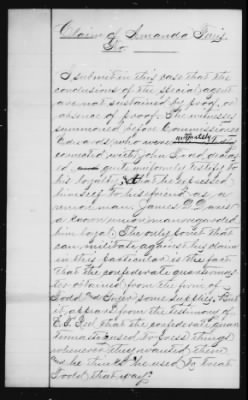 Claim of Amanda
No
I submit in this case that the
conclusions of the special agent
are not sustained by proof, or
absence of proof. The witnesses
summoned before Commissioner
Edwards, who were intimately
connected with John Todd, deceas
ed, quite uniformly testify to
his loyalty, that he expressed
himself to his friends as a
union man. James D. Davis
a known union man regarded
him loyal. The only point that
can militate against his claim
in this particular is the fact
that the confederate quartermas
ter obtained from the firm of
Todd some supplies. But
it appears from the testimony of
that the confederate quar
termaster used to press things
whenever they wanted them
and he thinks he used to treat
Todd that way.